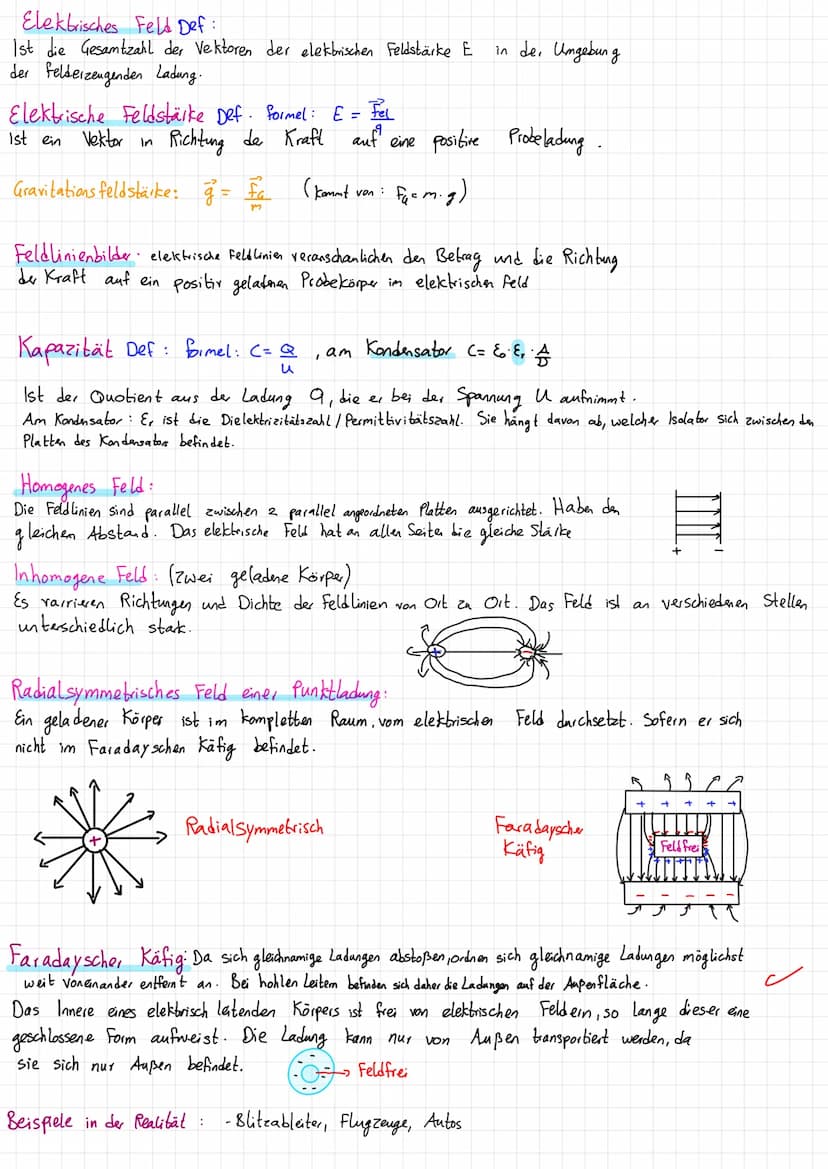 Elektrisches Feld Def:
Ist die Gesamtzahl der Vektoren der elektrischen Feldstärke E in der Umgebung
der felderzeugenden Ladung.
Elektrische Feldstärke Def. Formel: E = F⃗el/q
Ist ein Vektor in Richtung der Kraft auf eine positive Probeladung.
Gravitationsfeldstärke: g⃗ = F⃗G/m (kommt von: FG = m·g)
Feldlinienbilder: elektrische Feldlinien veranschaulichen den Betrag und die Richtung
der Kraft auf ein positiv geladenen Probekörper im elektrischen Feld
Kapazität Def: Formel: C = Q/U, am Kondensator C = ε₀·εᵣ·A/D
Ist der Quotient aus der Ladung Q, die er bei der Spannung U aufnimmt.
Am Kondensator: εᵣ ist die Dielektrizitätszahl/Permittivitätszahl. Sie hängt davon ab, welcher Isolator sich zwischen den
Platten des Kondensators befindet.
Homogenes Feld:
Die Feldlinien sind parallel zwischen 2 parallel angeordneten Platten ausgerichtet. Haben den
gleichen Abstand. Das elektrische Feld hat an allen Seiten die gleiche Stärke
+ -
Inhomogene Feld: (Zwei geladene Körper)
Es varrieren Richtungen und Dichte der Feldlinien von Ort zu Ort. Das Feld ist an verschiedenen Stellen
unterschiedlich stark.
+ -
Radialsymmetrisches Feld einer Punktladung:
Ein geladener Körper ist im kompletten Raum, vom elektrischen Feld durchsetzt. Sofern er sich
nicht im Faradayschen Käfig befindet.
+ + + + +
Radialsymmetrisch
Faradayscher
Käfig
+
Feldfrei
- - - - -
Faradayscher Käfig: Da sich gleichnamige Ladungen abstoßen, ordnen sich gleichnamige Ladungen möglichst
weit voneinander entfernt an. Bei hohlen Leitern befinden sich daher die Ladungen auf der Außenfläche.
Das Innere eines elektrisch leitenden Körpers ist frei von elektrischen Feldern, so lange dieser eine
geschlossene Form aufweist. Die Ladung kann nur von Außen transportiert werden, da
sie sich nur Außen befindet.
Feldfrei
Beispiele in der Realität: - Blitzableiter, Flugzeuge, Autos